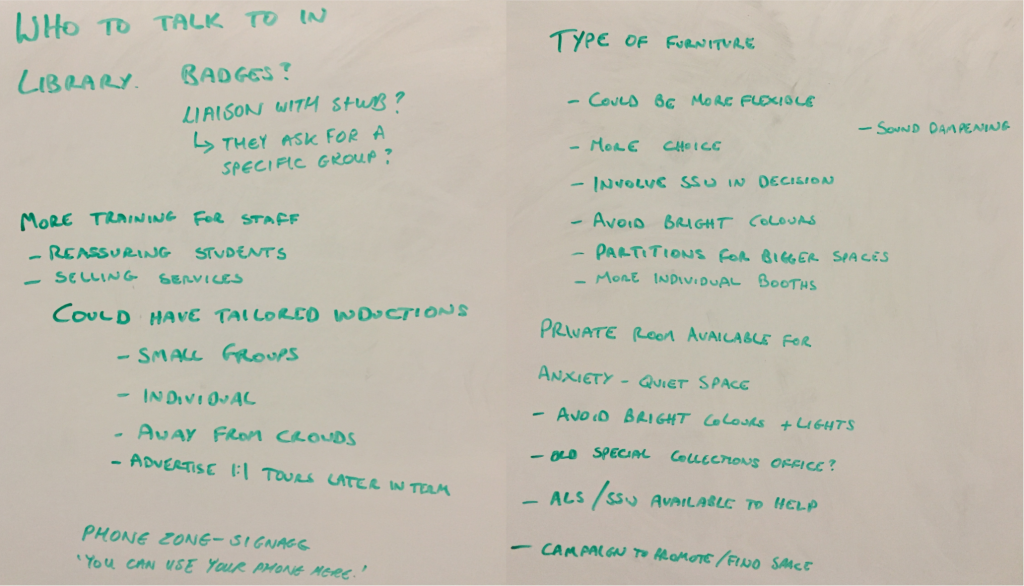 WHO TO TALK TO IN
LIBRARY. BADGES?
LIAISON WITH S+WB?
↳ THEY ASK FOR A
SPECIFIC GROUP?
MORE TRAINING FOR STAFF
- REASSURING STUDENTS
- SELLING SERVICES
COULD HAVE TAILORED INDUCTIONS
- SMALL GROUPS
- INDIVIDUAL
- AWAY FROM CROWDS
- ADVERTISE 1:1 TOURS LATER IN TERM
PHONE ZONE - SIGNAGE
'YOU CAN USE YOUR PHONE HERE.'
TYPE OF FURNITURE
- COULD BE MORE FLEXIBLE
- SOUND DAMPENING
- MORE CHOICE
- INVOLVE SSW IN DECISION
- AVOID BRIGHT COLOURS
- PARTITIONS FOR BIGGER SPACES
- MORE INDIVIDUAL BOOTHS
PRIVATE ROOM AVAILABLE FOR
ANXIETY - QUIET SPACE
- AVOID BRIGHT COLOURS + LIGHTS
- OLD SPECIAL COLLECTIONS OFFICE?
- ALS/SSW AVAILABLE TO HELP
- CAMPAIGN TO PROMOTE/FIND SPACE